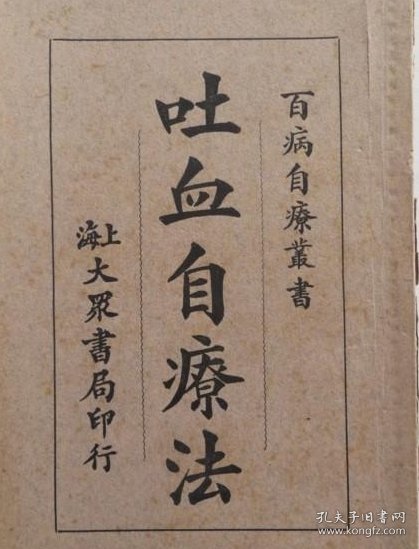 百病自療叢書
吐血自療法
上海大眾書局印行
孔夫子旧书网
www.kongfz.com